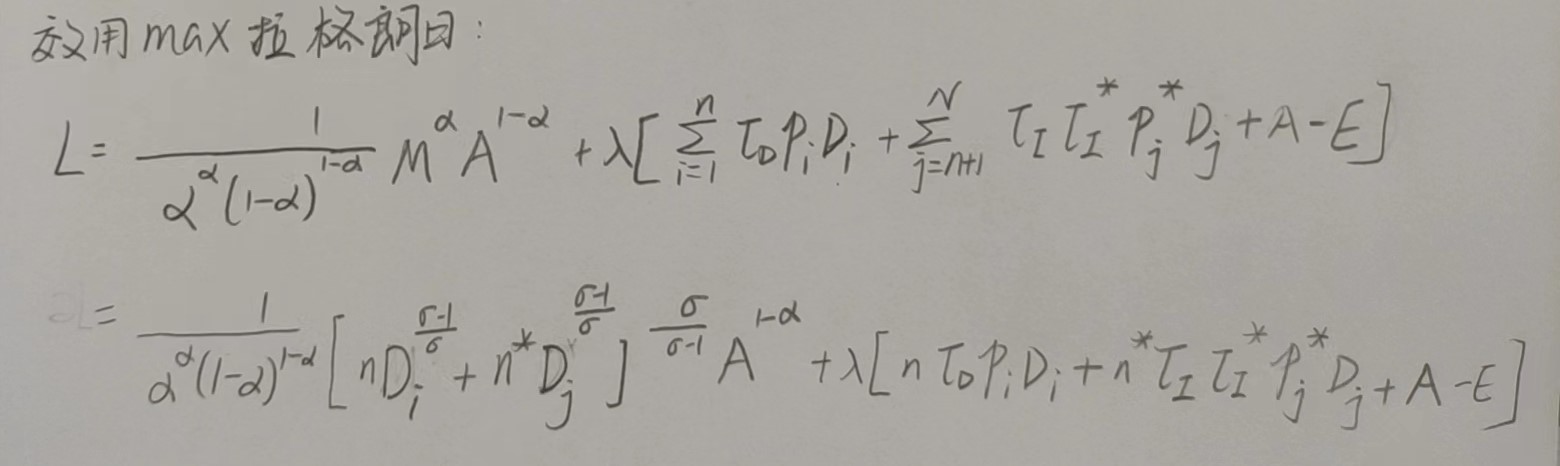 效用max拉格朗日:
L = \frac{1}{α^α(1-α)^{1-α}} M^α A^{1-α} + λ[\sum_{i=1}^{n} τ_D P_i D_i + \sum_{j=n+1}^{N} τ_I τ_I^* P_j^* D_j + A - E]
= \frac{1}{α^α(1-α)^{1-α}} [n D_i^{\frac{σ-1}{σ}} + n^* D_j^{\frac{σ-1}{σ}}]^{\frac{σ}{σ-1}} A^{1-α} + λ[n τ_D P_i D_i + n^* τ_I τ_I^* P_j^* D_j + A - E]